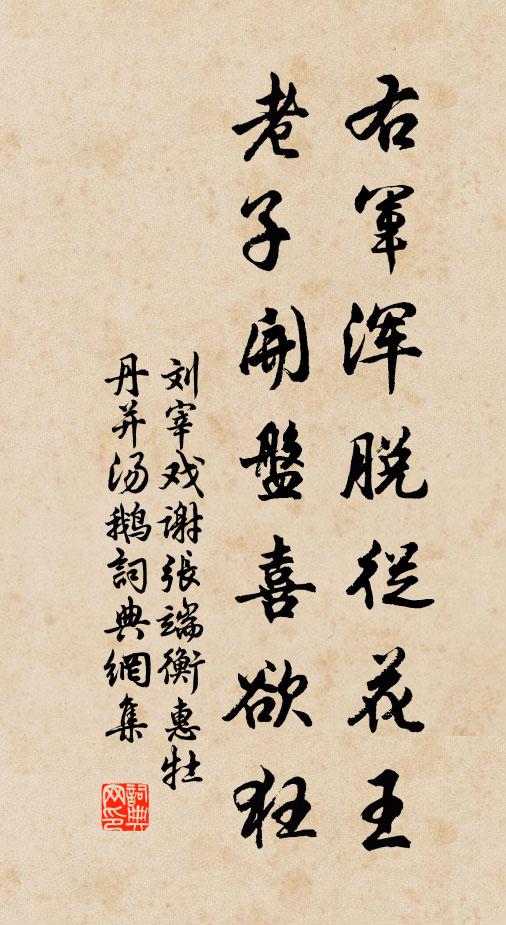 右軍浑脱從花王
老子開盤喜欲狂
刘宰戏谢張端衡惠牡
丹并汤鵝詞典網集
詞典网印